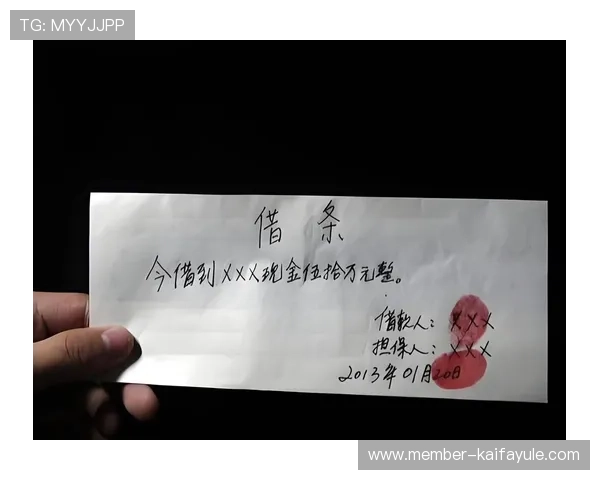 TG: MYYJJPP
借条
今借到XXX现金伍拾万元整。
借款人：XXX
担保人：XXX
2013年01月20日
www.member-kaifayule.com